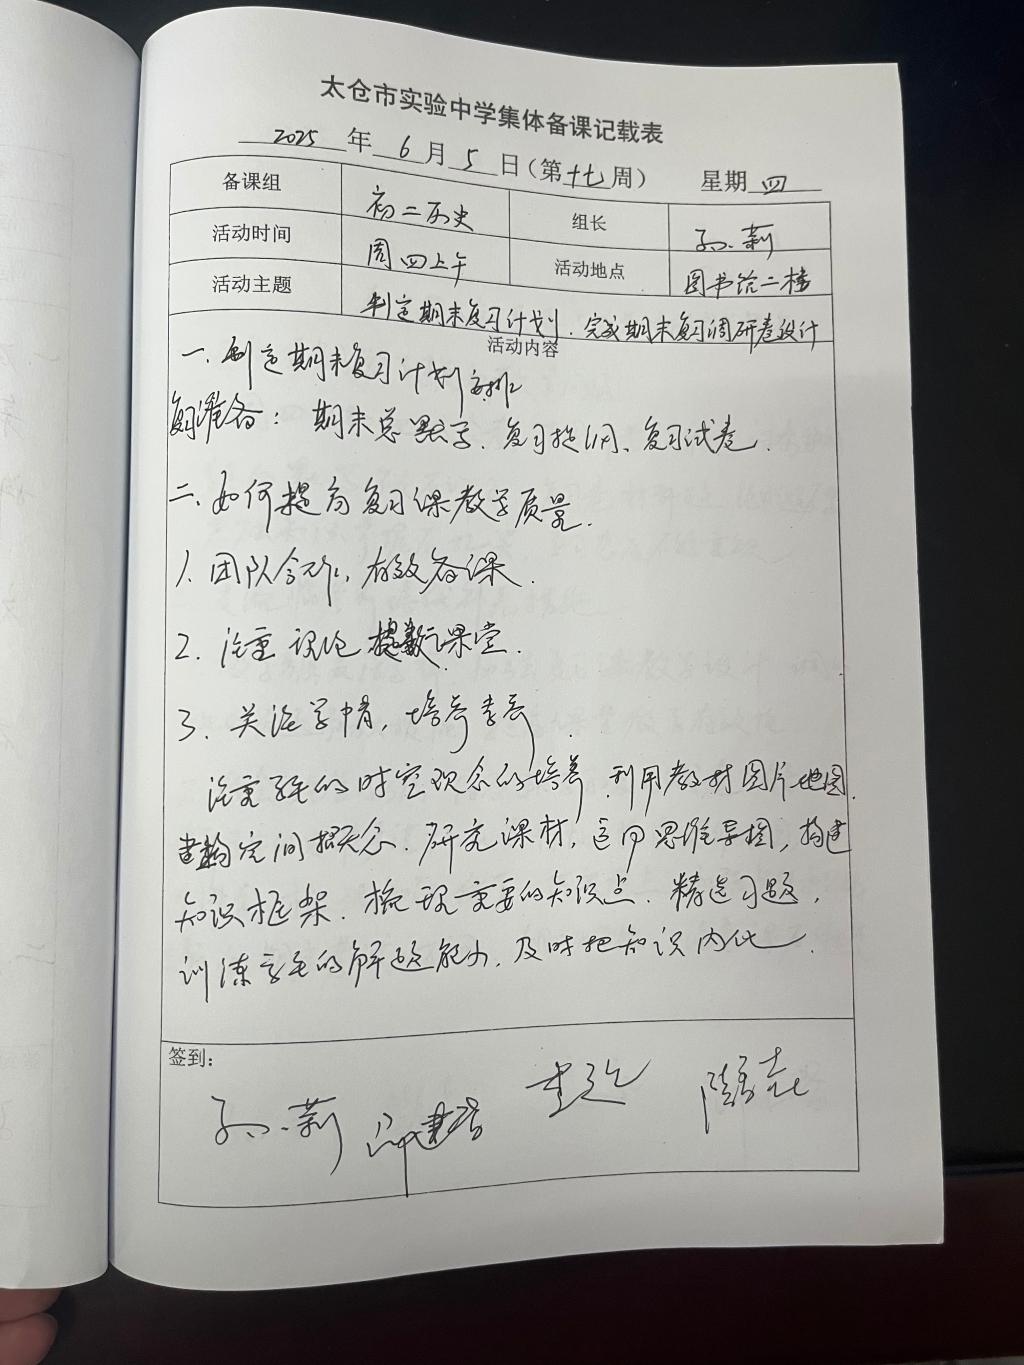 太仓市实验中学集体备课记载表
2025 年 6 月 5 日（第十七周） 星期 四
备课组 初二历史 组长 孙莉
活动时间 周四上午 活动地点 图书馆二楼
活动主题 制定期末复习计划、完成期末复习调研卷设计
活动内容
一、制定期末复习计划安排
复习准备：期末总默写、复习提纲、复习试卷.
二、如何提高复习课教学质量.
1. 团队合作，有效备课.
2. 注重理论 课堂.
3. 关注学情，培养素养.
注重学生的时空观念的培养.利用教材图片地图.
建构空间概念.研究课材，运用思维导图，构建
知识框架.梳理重要的知识点.精选习题，
训练学生的解题能力.及时把知识内化.
签到：
孙莉